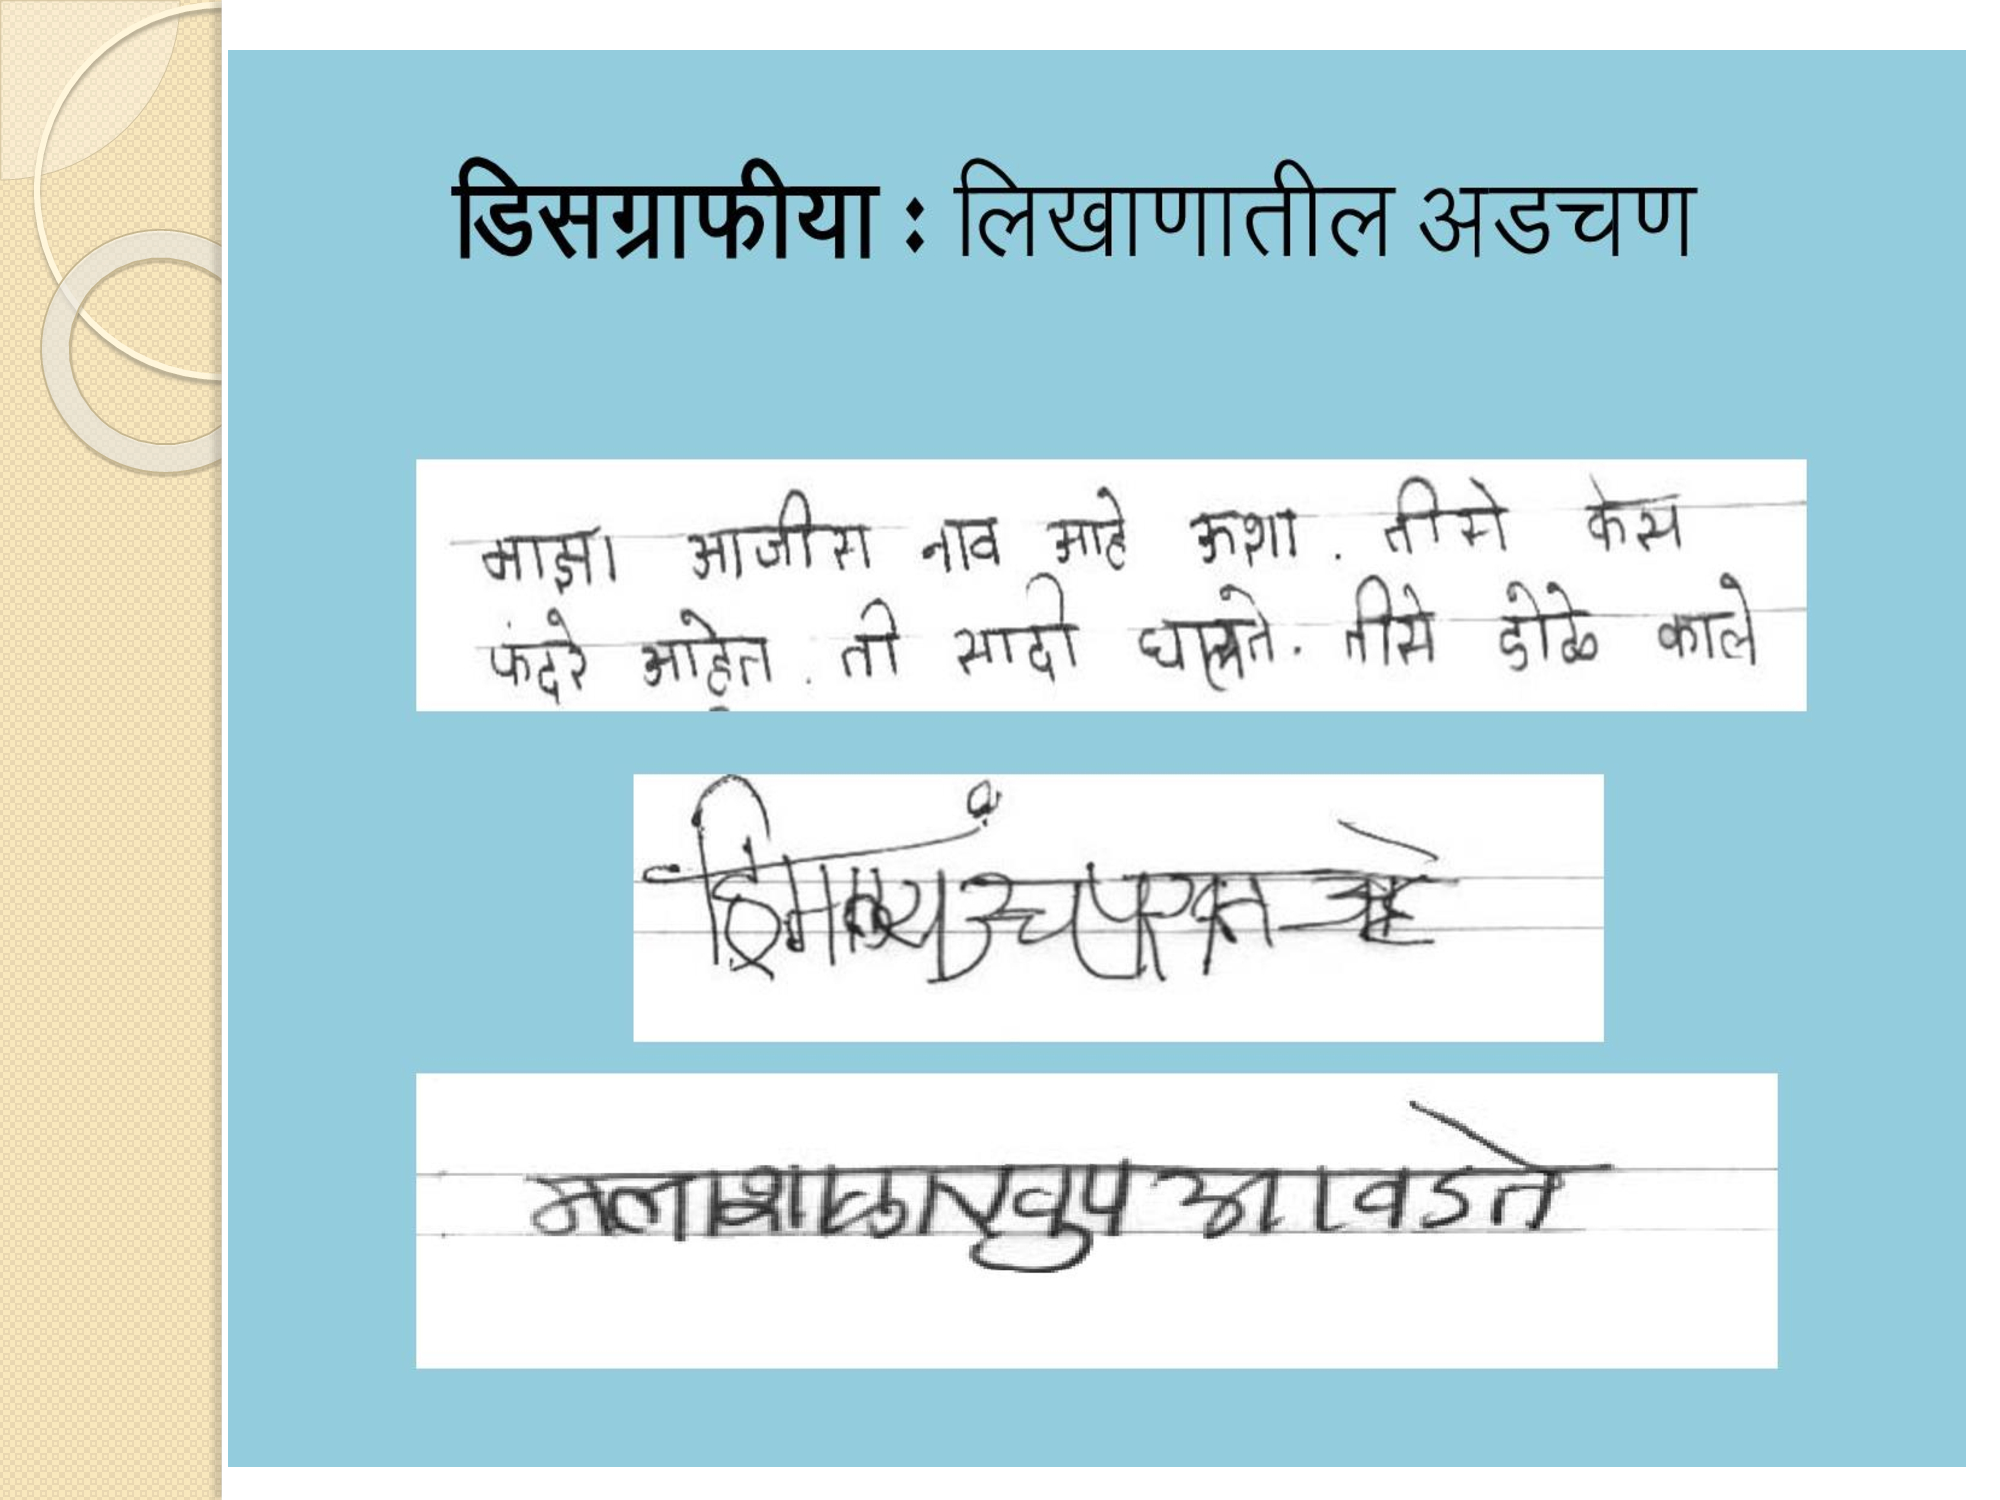 डिसग्राफीया : लिखाणातील अडचण
माझा आजीस नाव आहे ऊशा . तीसे केस
फंदरे आहेत . ती सादी घालते . तीसे डोळे काले
हिमालय उंच पर्वत आहे
मला शाळा खुप आवडते